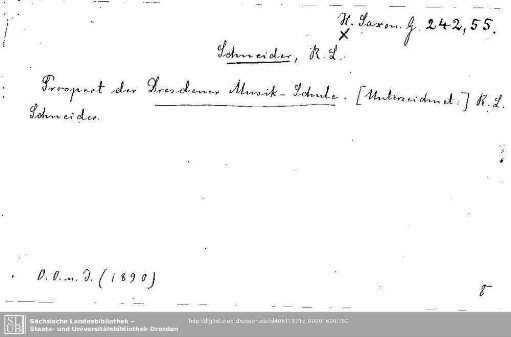 H. Saxon. G. 242, 55.
X
Schneider, R. L.
Prospect der Dresdener Musik-Schule. [Unterzeichnet:] R. L.
Schneider.
O. O. u. J. (1890)
8
SLUB
Sächsische Landesbibliothek –
Staats- und Universitätsbibliothek Dresden